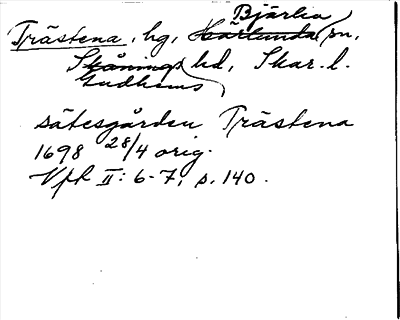 Bjärlia
Trästena, hg, Härlunda sn,
Skånings hd, Skar. l.
Gudhems
sätesgården Trästena
1698 28/4 orig.
Vfk II: 6-7, s. 140.